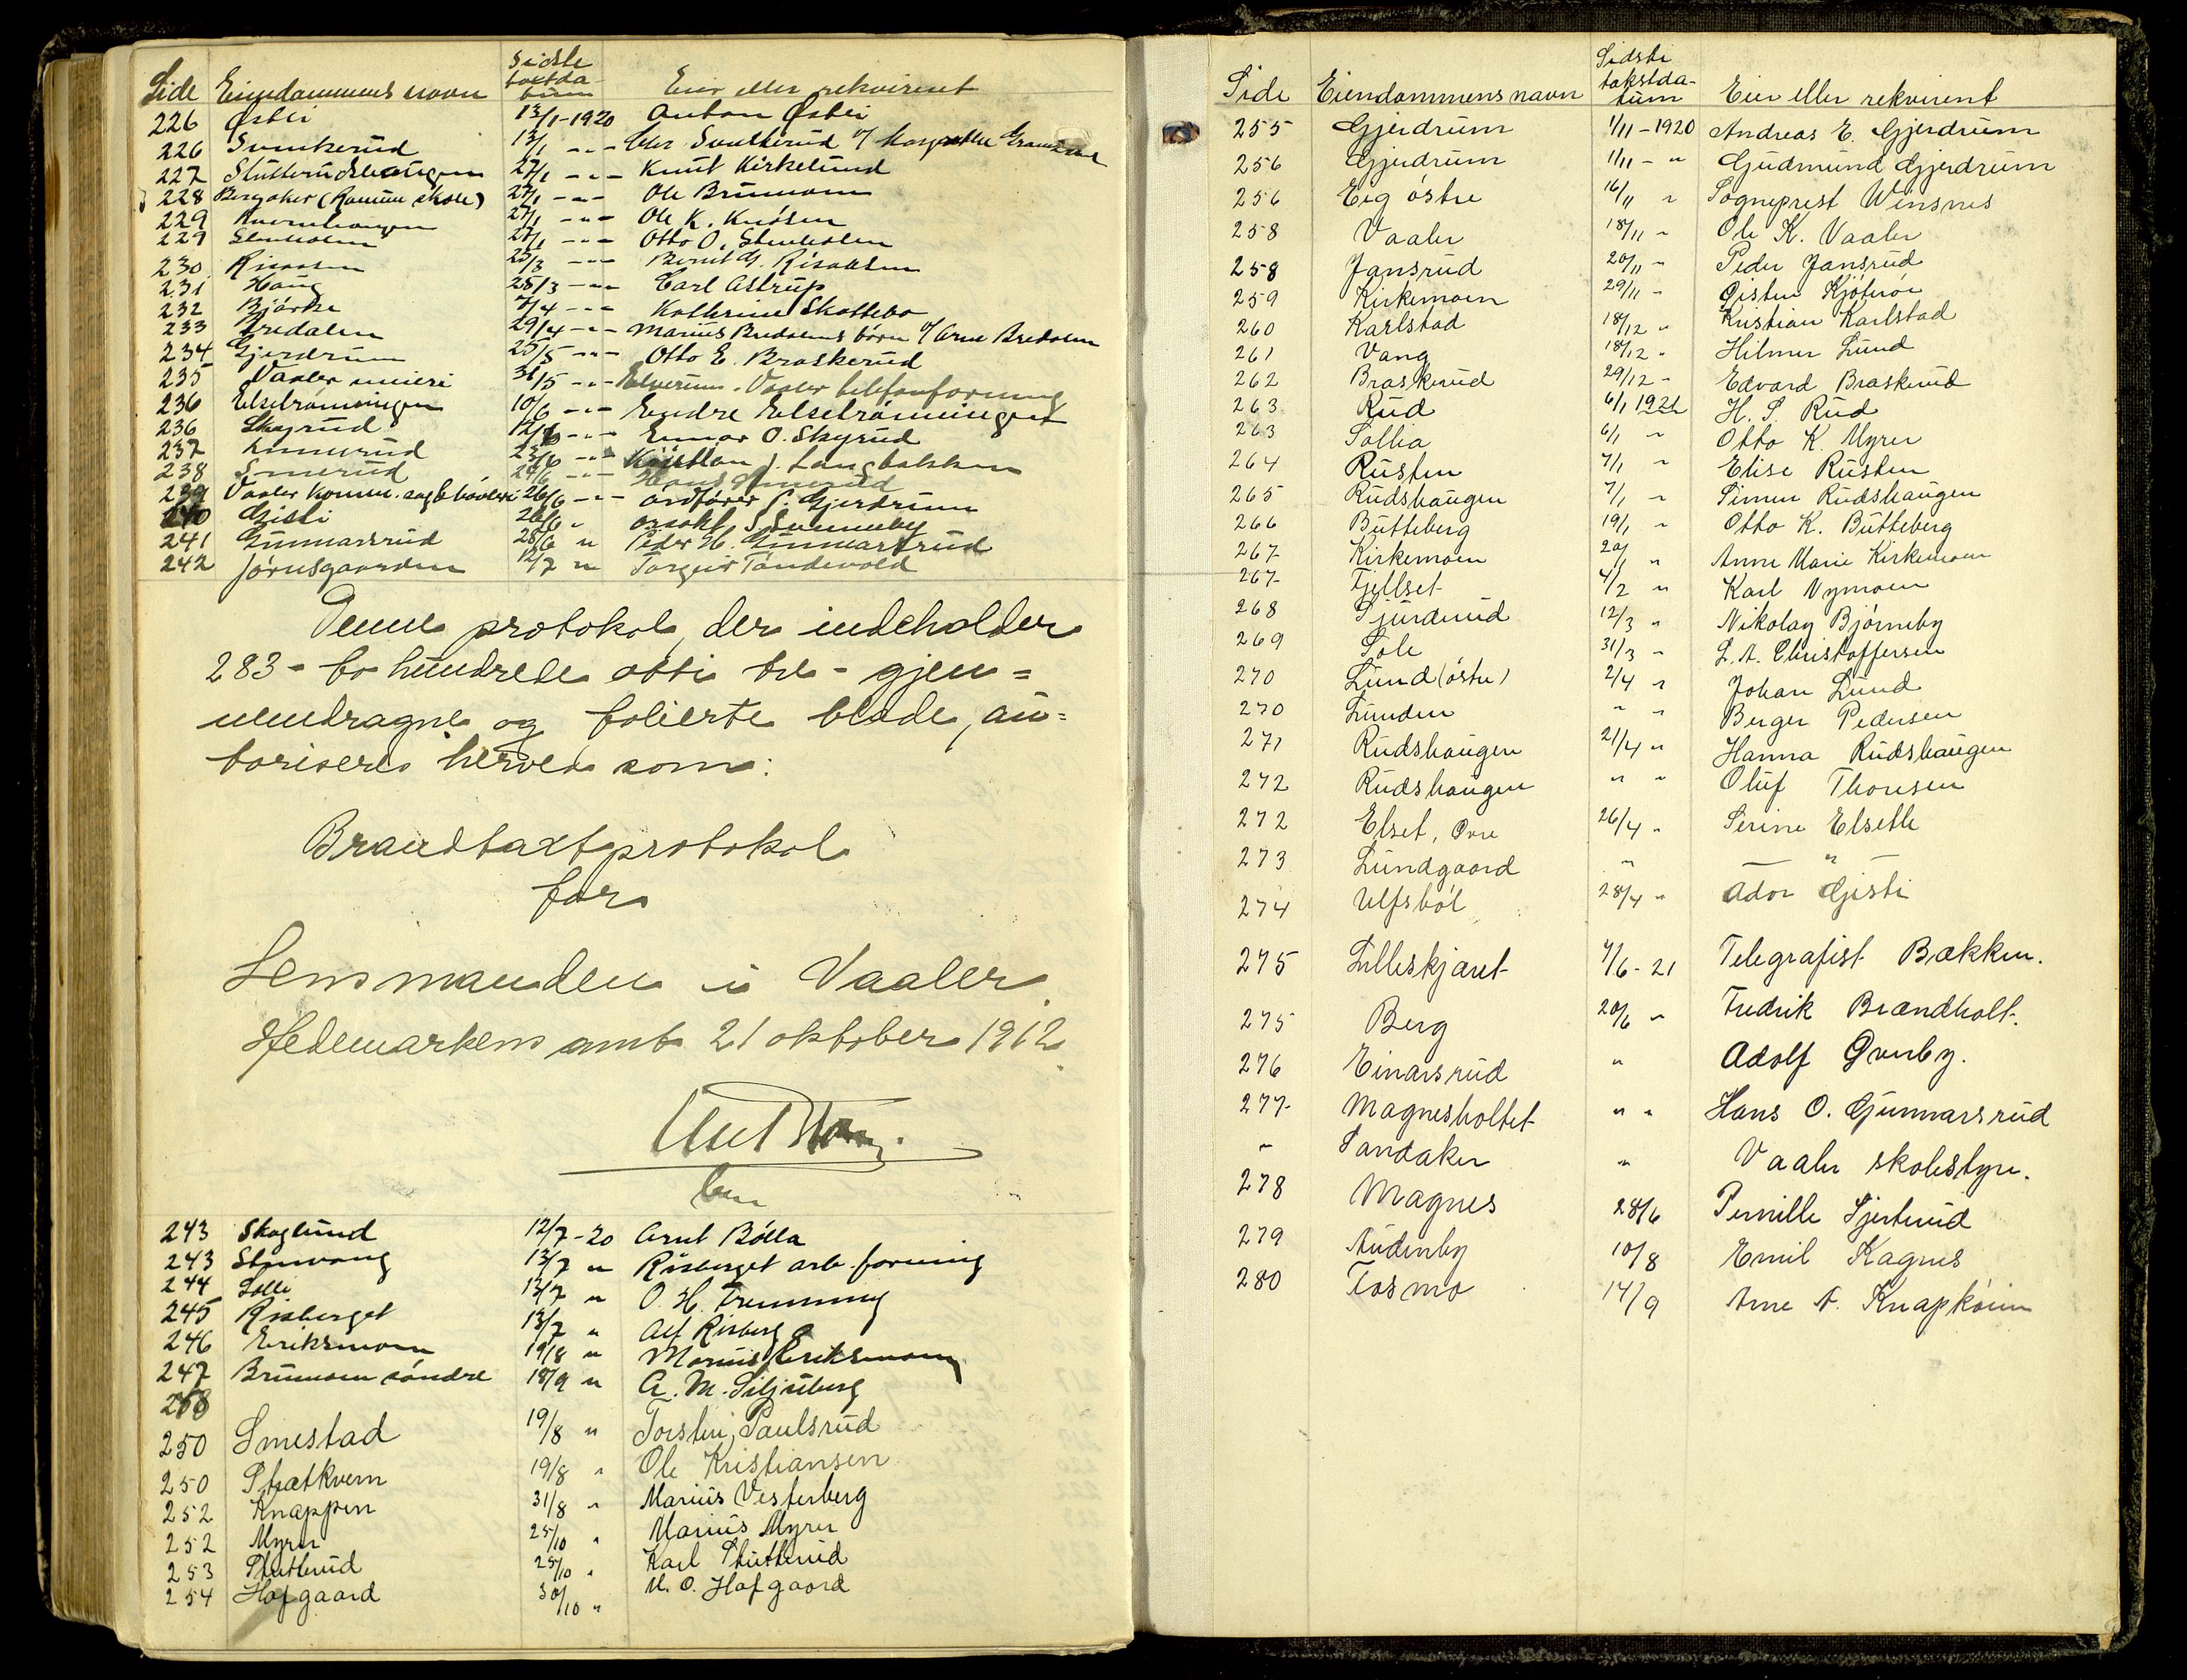 Side Eiendommens navn Sidste taxtda- tum Eier eller rekvirent
226 Østli 13/1-1920 Anton Østli
226 Svenkerud 13/1 -"-
227 Stutterudshaugen 27/1 -"- Knut Kirkelund
228 Bergaker (Romme skole) 27/1 -"- Ole Brumoen
229 27/1 -"- Ole K. Knósen
229 Stenholen 27/1 -"- Otto O. Stenholen
230 Risaasen 25/3 -"- Bernt G. Risaasen
231 Haug 25/3 -"- Carl Astrup
232 Bjórke 7/4 -"- Kathrine Skattebo
233 Bredalen 29/4 -"- Marius Bredalens børn v/ Arne Bredalen
234 Gjerdrum 25/5 -"- Otto E. Braskerud
235 Vaaler meieri 31/5 -"- Elverum-Vaaler telefonforening
236 Elsetrómningen 10/6 -"- Endre Elsetrómningen
236 Skyrud 12/6 -"- Einar O. Skyrud
237 Linnerud 23/6 -"- Kristian J. Langbakken
238 Smerud 24/6 -"- Hans Smerud
239 Vaaler komm. sag & høvleri 26/6 -"- ordfører P. Gjerdrum
240 Gjisti 26/6 " orsakt S. Sunneby
241 Gunnarsrud 28/6 " Peder H. Gunnarsrud
242 Jórnsgaarden 12/7 " Torgeir Tóndevold
Denne protokol, der indeholder
283 - to hundrede otti tre - gjen=
nemdragne og folierte blade, au=
toriseres herved som:
Brandtaxtprotokol
for
Lensmanden i Vaaler.
Hedemarkens amt 21 oktober 1912.
243 Skoglund 12/7-20 Arnt Bólla
243 Stenvang 13/7 " Risberget arb. forening
244 Solli 13/7 " O. H. Fremming
245 Risberget 13/7 " Alf Risberg
246 Eriksmoen 19/8 " Marius Eriksmoen
247 Brumoen söndre 18/9 " A. M. Siljuberg
248
250 Smestad 19/8 " Torstein Paulsrud
250 Strætkvern 19/8 " Ole Kristiansen
252 Knappen 31/8 " Marius Vesterberg
252 Myrer 25/10 " Marius Myrer
253 Stutterud 25/10 " Karl Stutterud
254 Hofgaard 30/10 " M. O. Hofgaard
Side Eiendommens navn Sidste takstda- tum Eier eller rekvirent
255 Gjerdrum 1/11-1920 Andreas E. Gjerdrum
256 Gjerdrum 1/11 - " Gudmund Gjerdrum
256 Eig östre 16/11 " Sogneprest Winsnes
258 Vaaler 18/11 " Ole K. Vaaler
258 Jansrud 20/11 " Peder Jansrud
259 Kirkemoen 29/11 "
260 Karlstad 18/12 " Kristian Karlstad
261 Vang 18/12 " Hilmer Lund
262 Braskerud 29/12 - Edvard Braskerud
263 Rud 6/1 1921 H. S. Rud
263 Sollia 6/1 " Otto K. Myrer
264 Rusten 7/1 " Elise Rusten
265 Rudshaugen 7/1 " Simen Rudshaugen
266 Butteberg 19/1 " Otto K. Butteberg
267 Kirkemoen 20/1 " Anne Marie Kirkemoen
267 Fjellset 4/2 " Karl Nymoen
268 Sjurderud 12/3 " Nikolay Bjørneby
269 Sole 31/3 " L. A. Christoffersen
270 Lund (óstre) 2/4 " Johan Lund
270 Lunden " " Berger Pedersen
271 Rudshaugen 21/4 " Hanna Rudshaugen
272 Rudshaugen " " Oluf Thoresen
272 Elset, Övre 26/4 " Serine Elseth
273 Lundgaard " — " —
274 Ulfsból 28/4 " Ador Gjisti
275 Lilleskjæret 7/6-21 Telegrafist Bækken.
275 Berg 20/6 " Fredrik Brændholt.
276 Einarsrud " Adolf Qvenby.
277 Magnesholtet " " Hans O. Gunnarsrud
" Sandaker " Vaaler skolestyre.
278 Magnes 28/6 Pernille Sjerterud
279 Audenby 10/8 Emil Kagnes
280 Fosmo 14/9 Arne A. Knapkóien